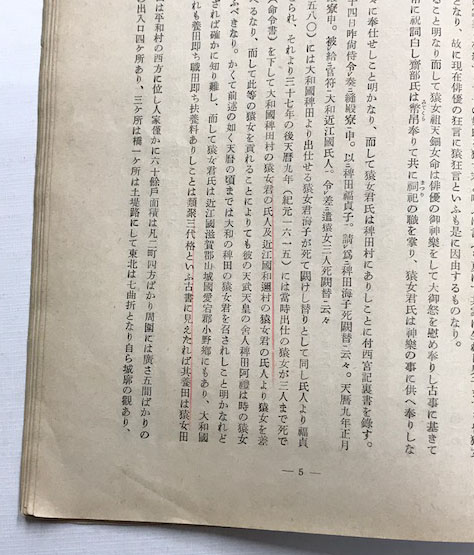 となり、故に現在俳優の狂言を猿狂言といふも是に因由するものなり。
ること明なり而して猿女祖天鈿女命は俳優の御神樂をして大御慾を慰め奉りし古事に基きて
常に祀詞白し齋部氏は幣帛奉りて共に祠祀の職を掌り、猿女君氏は神樂の事に供へ奉りしな
々に奉仕せしこと明かなり、而して猿女君氏は稗田村にありしことに付西宮記裏書を錄す。
十四日昨尙侍令奏縫殿寮申。以稗田福貞子。請爲稗田海子死闕替云々。天曆九年正月
寮申。被給官符大和近江國氏人。令差進猿女三人死闕替云々
五八〇)には大和國稗田より出仕せる猿女君海子が死て闕けし替りとして同し氏人より福貞
られ、それより三十七年の後天曆九年(紀元一六一五)には當時出仕の猿女が三人まで死で
(命令書)を下して大和國稗田村の猿女君の氏人及近江國和邇村の猿女君の氏人より猿女を差
べるなり、而して此等の猿女を貢れることによりても彼の天武天皇の舍人稗田阿禮は時の猿女
ふべきなり。かくて前述の如く天曆の頃までは大和の稗田の猿女君を召されしこと明かなれど
されば確かに知り難し、而して猿女君氏は近江國滋賀郡山城國愛宕郡小野鄕にもあり、大和國
れも養田卽ち職田卽ち扶養料ありしことは類聚三代格といふ古書に見えたれば其養田は猿女田
は平和村の西方に位し人家僅かに六十餘戶面積は凡二町四方ばかり周園には廣さ五間ばかりの
出入口四ケ所あり、三ケ所は橋一ケ所は土堤路にして東北は七曲折となり自ら城廓の觀あり、
— 5 —